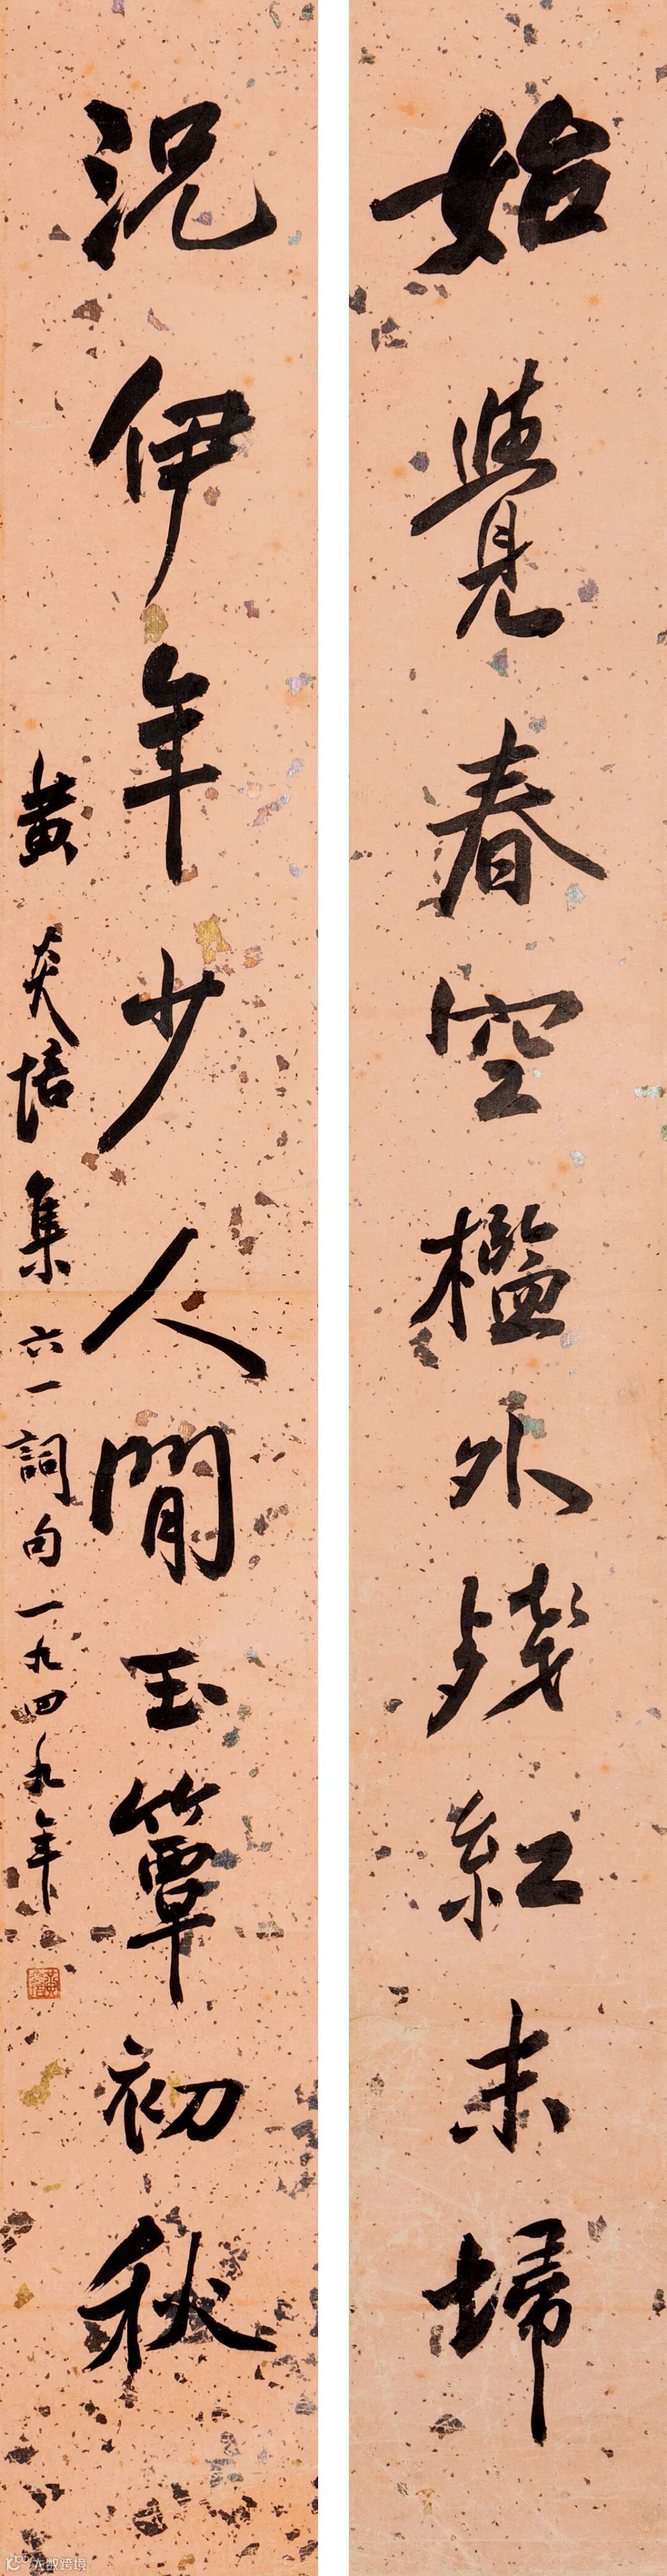 始覺春空檻外殘紅未埽
況伊年少人閒玉簟初秋
黃炎培集六一詞句一九四九年
大數跨境